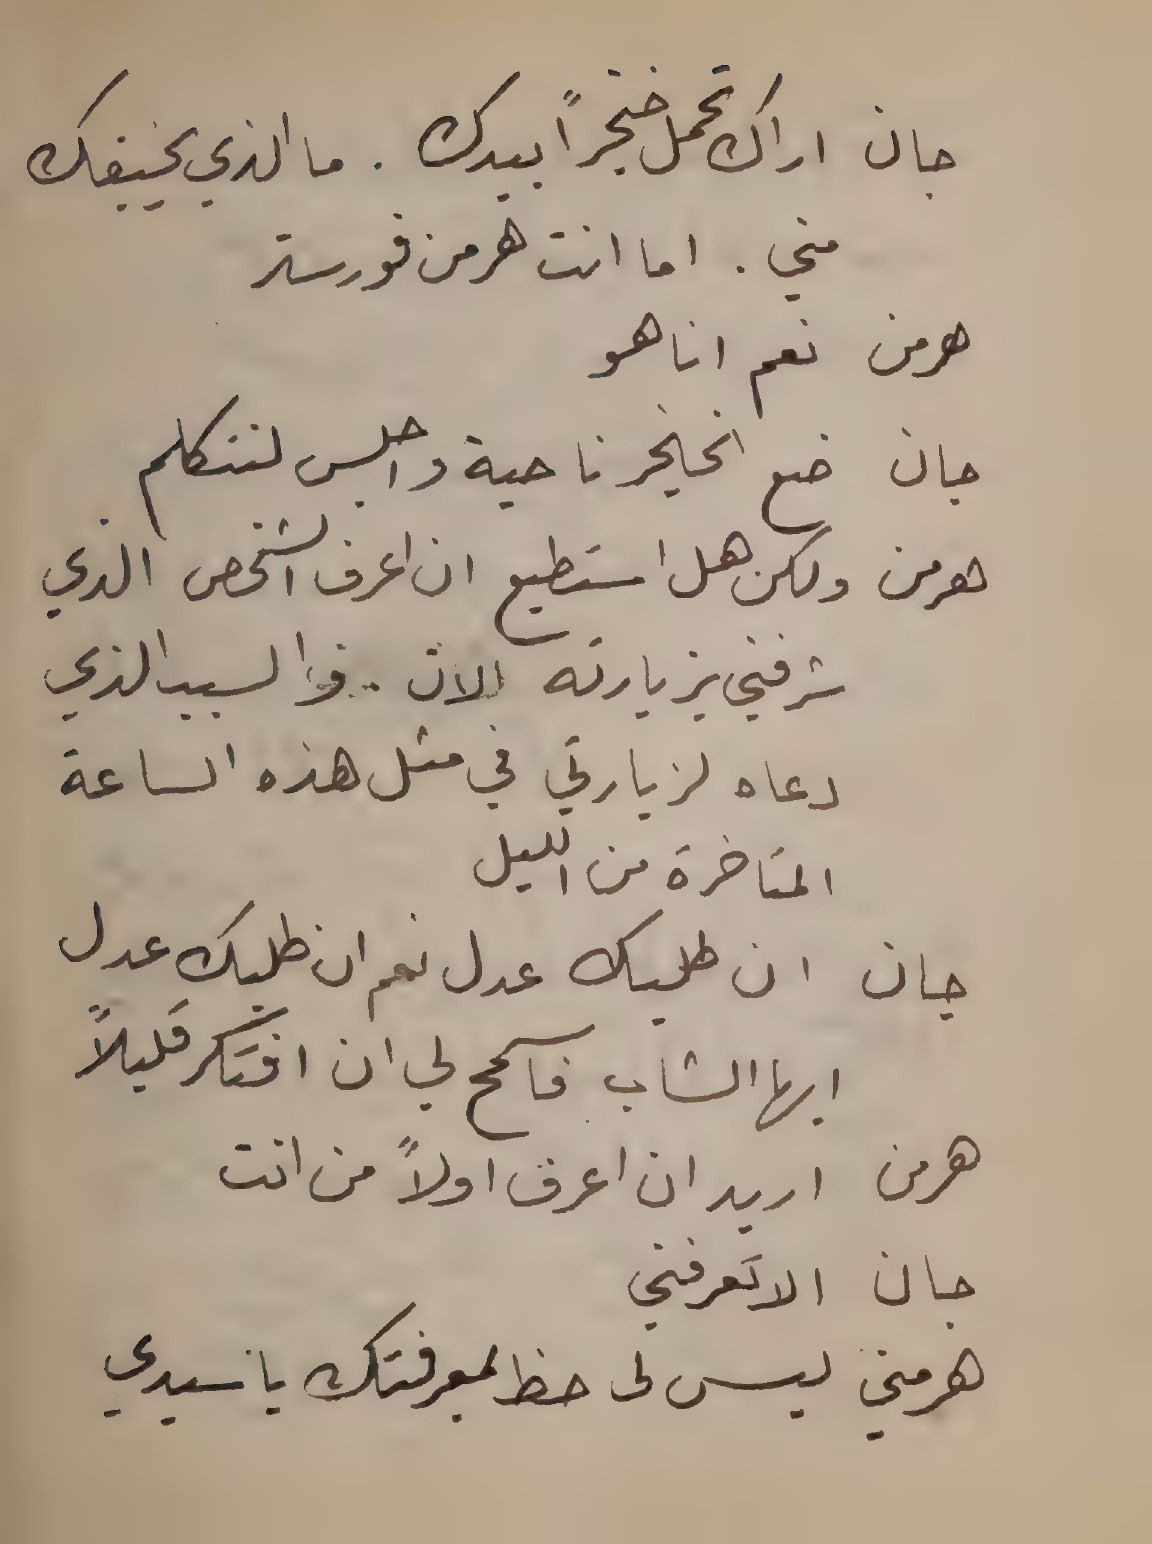 جان اراك تحمل خنجراً بيدك . ما الذي يخيفك
مني . اما انت هرمن فورستر
هرمن نعم انا هو
جان ضع الخنجر ناحية واجلس لنتكلم
هرمن ولكن هل استطيع ان اعرف الشخص الذي
شرفني بزيارته الان .. والسبب الذي
دعاه لزيارتي في مثل هذه الساعة
المتاخرة من الليل
جان ان طلبك عدل نعم ان طلبك عدل
ايها الشاب فاسمح لي ان افتكر قليلاً
هرمن اريد ان اعرف اولاً من انت
جان الا تعرفني
هرمني ليس لى حظ لمعرفتك يا سيدي